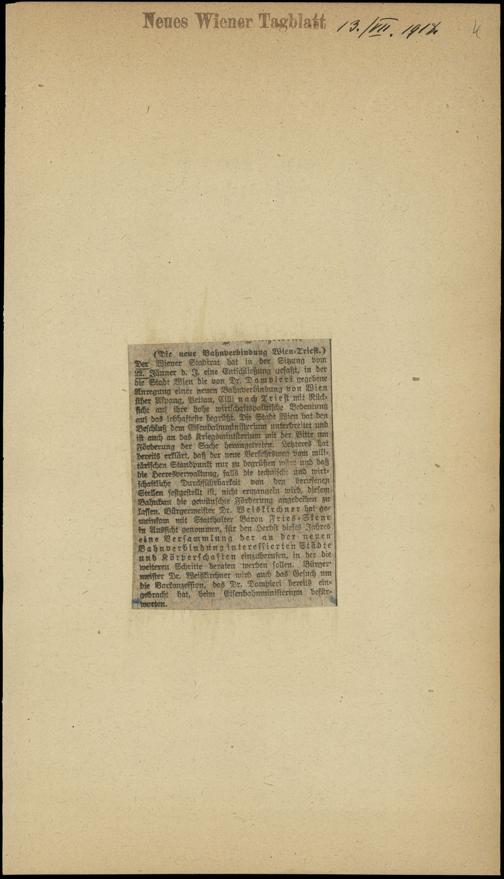 Neues Wiener Tagblatt 13./VII. 1918 4
(Die neue Bahnverbindung Wien-Triest.)
Der Wiener Stadtrat hat in der Sitzung vom
22. Jänner d. J. eine Entschließung gefaßt, in der
die Stadt Wien die von Dr. Dampieri gegebene
Anregung einer neuen Bahnverbindung von Wien
über Aspang, Pettau, Cilli nach Triest mit Rück-
sicht auf ihre hohe wirtschaftspolitische Bedeutung
auf das lebhafteste begrüßt. Die Stadt Wien hat den
Beschluß dem Eisenbahnministerium unterbreitet und
ist auch an das Kriegsministerium mit der Bitte um
Förderung der Sache herangetreten. Letzteres hat
bereits erklärt, daß der neue Verkehrsweg vom mili-
tärischen Standpunkt nur zu begrüßen wäre und daß
die Heeresverwaltung, falls die technische und wirt-
schaftliche Durchführbarkeit von den berufenen
Stellen festgestellt ist, nicht ermangeln wird, diesem
Bahnbau die gewünschte Förderung angedeihen zu
lassen. Bürgermeister Dr. Weiskirchner hat ge-
meinsam mit Statthalter Baron Fries-Skene
in Aussicht genommen, für den Herbst dieses Jahres
eine Versammlung der an der neuen
Bahnverbindung interessierten Städte
und Körperschaften einzuberufen, in der die
weiteren Schritte beraten werden sollen. Bürger-
meister Dr. Weiskirchner wird auch das Gesuch um
die Vorkonzession, das Dr. Dampieri bereits ein-
gebracht hat, beim Eisenbahnministerium befür-
worten.